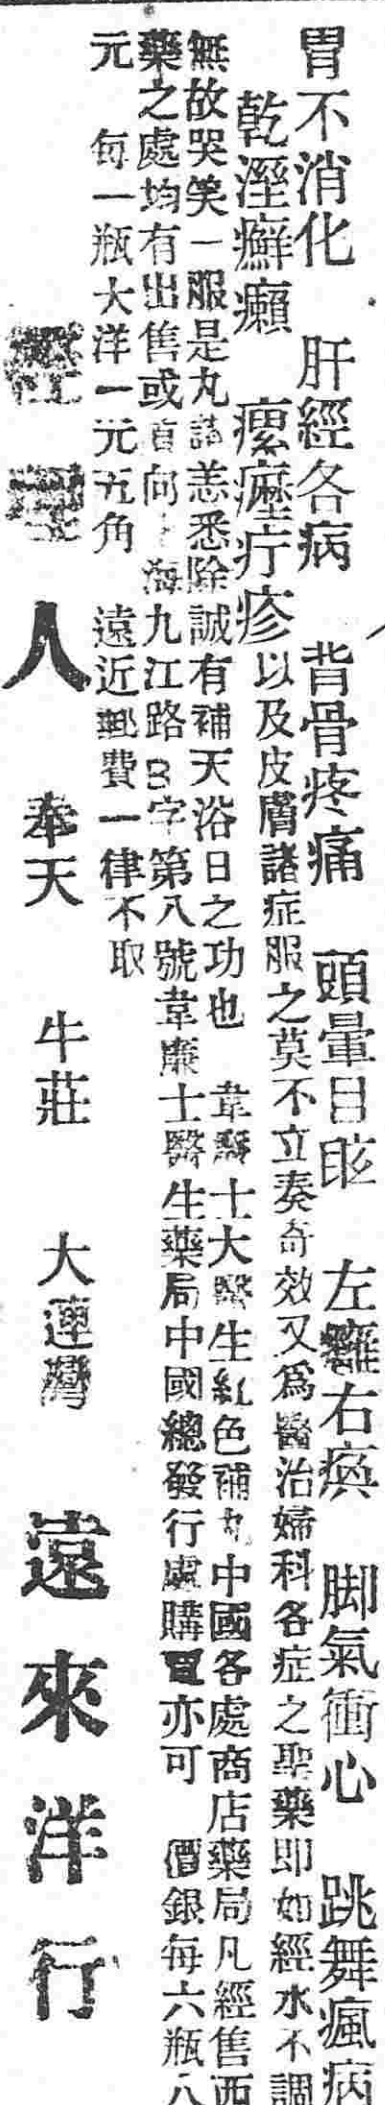 胃不消化 肝經各病 背骨疼痛 頭暈目眩 左癱右瘓 脚氣衝心 跳舞瘋病
乾溼癬癩 瘰癧疔疹以及皮膚諸症服之莫不立奏奇效又爲醫治婦科各症之聖藥即如經水不調
無故哭笑一服是丸諸恙悉除誠有補天浴日之功也 韋廉士大醫生紅色補丸中國各處商店藥局凡經售西
藥之處均有出售或直向上海九江路B字第八號韋廉士醫生藥局中國總發行處購買亦可 價銀每六瓶八
元 每一瓶大洋一元五角 遠近郵費一律不取
經理人 奉天 牛莊 大連灣 遠來洋行